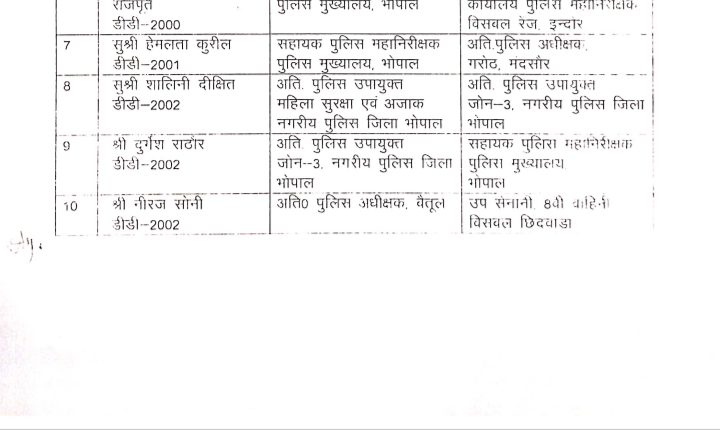 राजपूत
डीडी–2000
पुलिस मुख्यालय, भोपाल
कार्यालय पुलिस महानिरीक्षक
विसवल रेंज, इन्दौर
7
सुश्री हेमलता कुरील
डीडी–2001
सहायक पुलिस महानिरीक्षक
पुलिस मुख्यालय, भोपाल
अति.पुलिस अधीक्षक,
गरोठ, मंदसौर
8
सुश्री शालिनी दीक्षित
डीडी–2002
अति. पुलिस उपायुक्त
महिला सुरक्षा एवं अजाक
नगरीय पुलिस जिला भोपाल
अति. पुलिस उपायुक्त
जोन–3, नगरीय पुलिस जिला
भोपाल
9
श्री दुर्गेश राठौर
डीडी–2002
अति. पुलिस उपायुक्त
जोन--3, नगरीय पुलिस जिला
भोपाल
सहायक पुलिस महानिरीक्षक
पुलिस मुख्यालय
भोपाल
10
श्री नीरज सोनी
डीडी–2002
अति0 पुलिस अधीक्षक, बैतूल
उप सेनानी, 8वी वाहिनी
विसबल छिंदवाडा